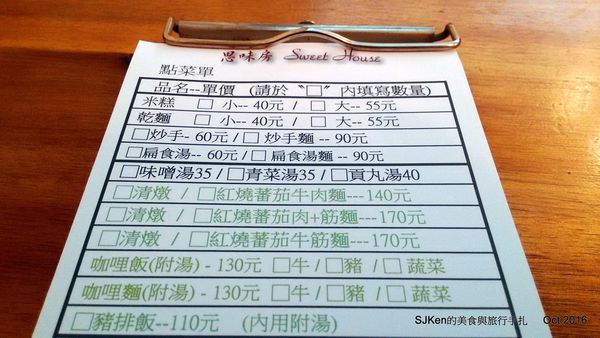 思味房 Sweet House
點菜單
品名--單價 (請於〝□〞內填寫數量)
米糕 □ 小-- 40元 / □ 大-- 55元
乾麵 □ 小-- 40元 / □ 大-- 55元
□炒手- 60元/ □ 炒手麵 -- 90元
□扁食湯-- 60元/ □扁食湯麵 -- 90元
□味噌湯35 / □青菜湯35 / □貢丸湯40
□清燉 / □紅燒蕃茄牛肉麵---140元
□清燉 / □紅燒蕃茄肉+筋麵---170元
□清燉 / □紅燒蕃茄牛筋麵---170元
咖哩飯(附湯) - 130元 □牛 / □豬 / □ 蔬菜
咖哩麵(附湯) - 130元 □牛 / □豬 / □ 蔬菜
□豬排飯--110元 (內用附湯)
SJKen的美食與旅行手扎 Oct 2016